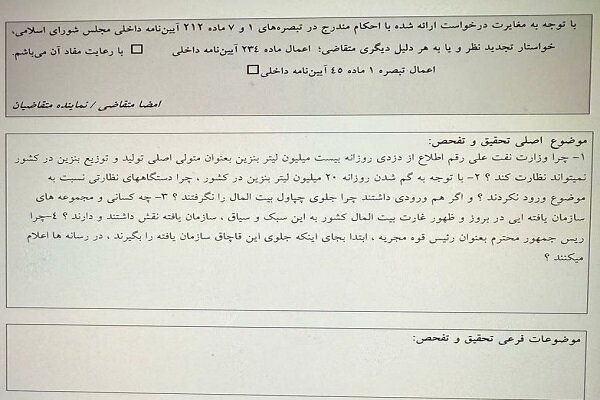 با توجه به مغایرت درخواست ارائه شده با احکام مندرج در تبصره‌های ۱ و ۷ ماده ۲۱۲ آیین‌نامه داخلی مجلس شورای اسلامی،
خواستار تجدید نظر و یا به هر دلیل دیگری متقاضی؛ اعمال ماده ۲۳۴ آیین‌نامه داخلی □ با رعایت مفاد آن می‌باشم.
اعمال تبصره ۱ ماده ۴۵ آیین‌نامه داخلی□
امضا متقاضی / نماینده متقاضیان
موضوع اصلی تحقیق و تفحص:
۱- چرا وزارت نفت علی رقم اطلاع از دزدی روزانه بیست میلیون لیتر بنزین بعنوان متولی اصلی تولید و توزیع بنزین در کشور
نمیتواند نظارت کند ؟ ۲- با توجه به گم شدن روزانه ۲۰ میلیون لیتر بنزین در کشور ، چرا دستگاههای نظارتی نسبت به
موضوع ورود نکردند ؟ و اگر هم ورودی داشتند چرا جلوی چپاول بیت المال را نگرفتند ؟ ۳- چه کسانی و مجموعه های
سازمان یافته ایی در بروز و ظهور غارت بیت المال کشور به این سبک و سیاق ، سازمان یافته نقش داشتند و دارند ؟ ۴-چرا
ریس جمهور محترم بعنوان رئیس قوه مجریه ، ابتدا بجای اینکه جلوی این قاچاق سازمان یافته را بگیرند ، در رسانه ها اعلام
میکنند ؟
موضوعات فرعی تحقیق و تفحص: